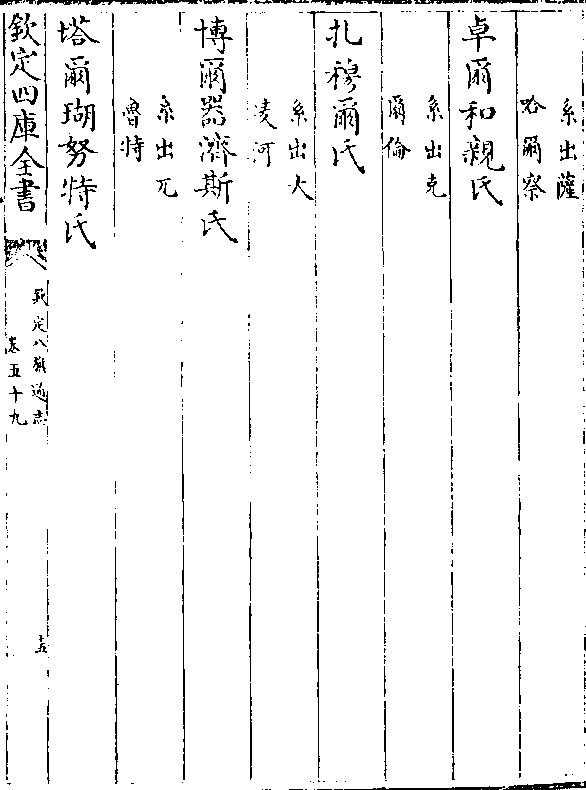 系出薩
哈爾察
卓爾和親氏
系出克
爾倫
扎穆爾氏
系出大
凌河
博爾器濟斯氏
系出兀
魯特
塔爾瑚努特氏
欽定四庫全書
欽定八旗通志
卷五十九
十五